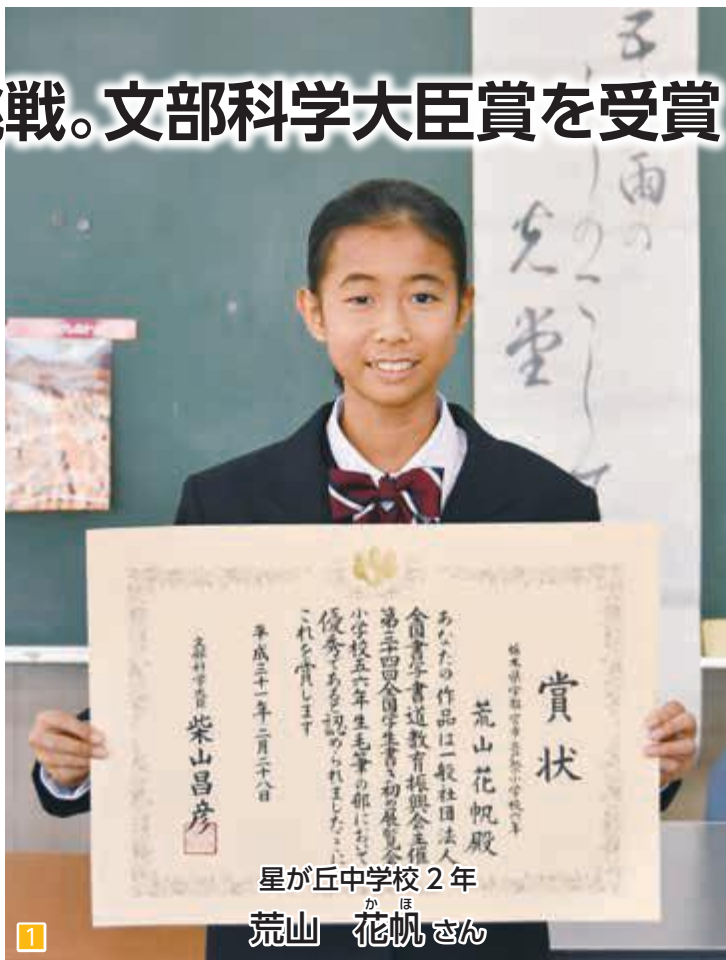 戦。文部科学大臣賞を受賞
雨の
のこして
光堂
賞状
荒山花帆殿
あなたの作品は一般社団法人
全国書写書道教育振興会主催
第三十四回全国学生書き初め展覧会
小学校五六年生毛筆の部において
優秀であると認められましたここに
これを賞します
平成三十一年二月二十八日
文部科学大臣 柴山昌彦
星が丘中学校2年
か ほ
荒山 花帆さん
1